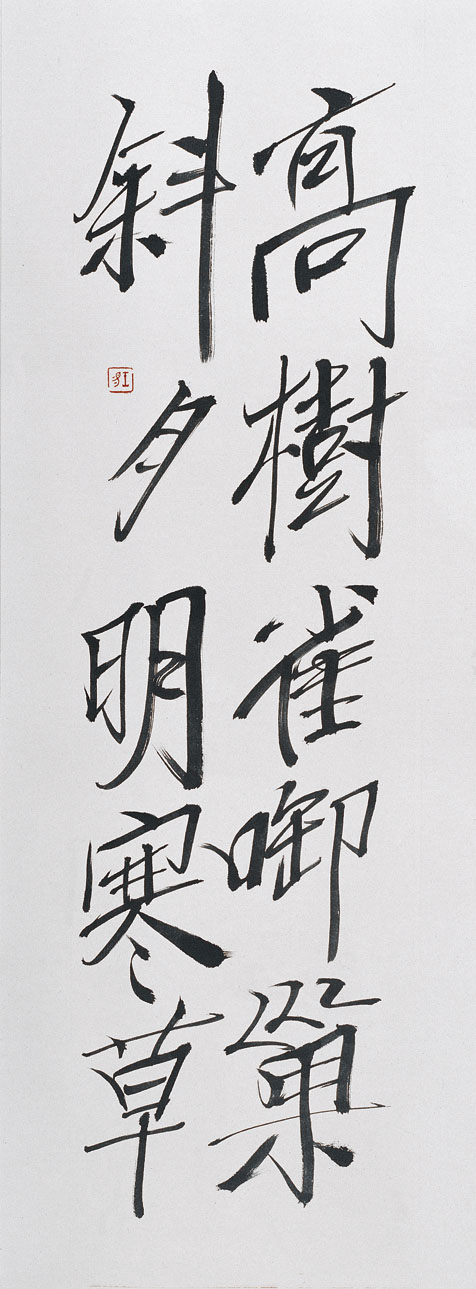 高樹雀啣巢
斜夕明寒草